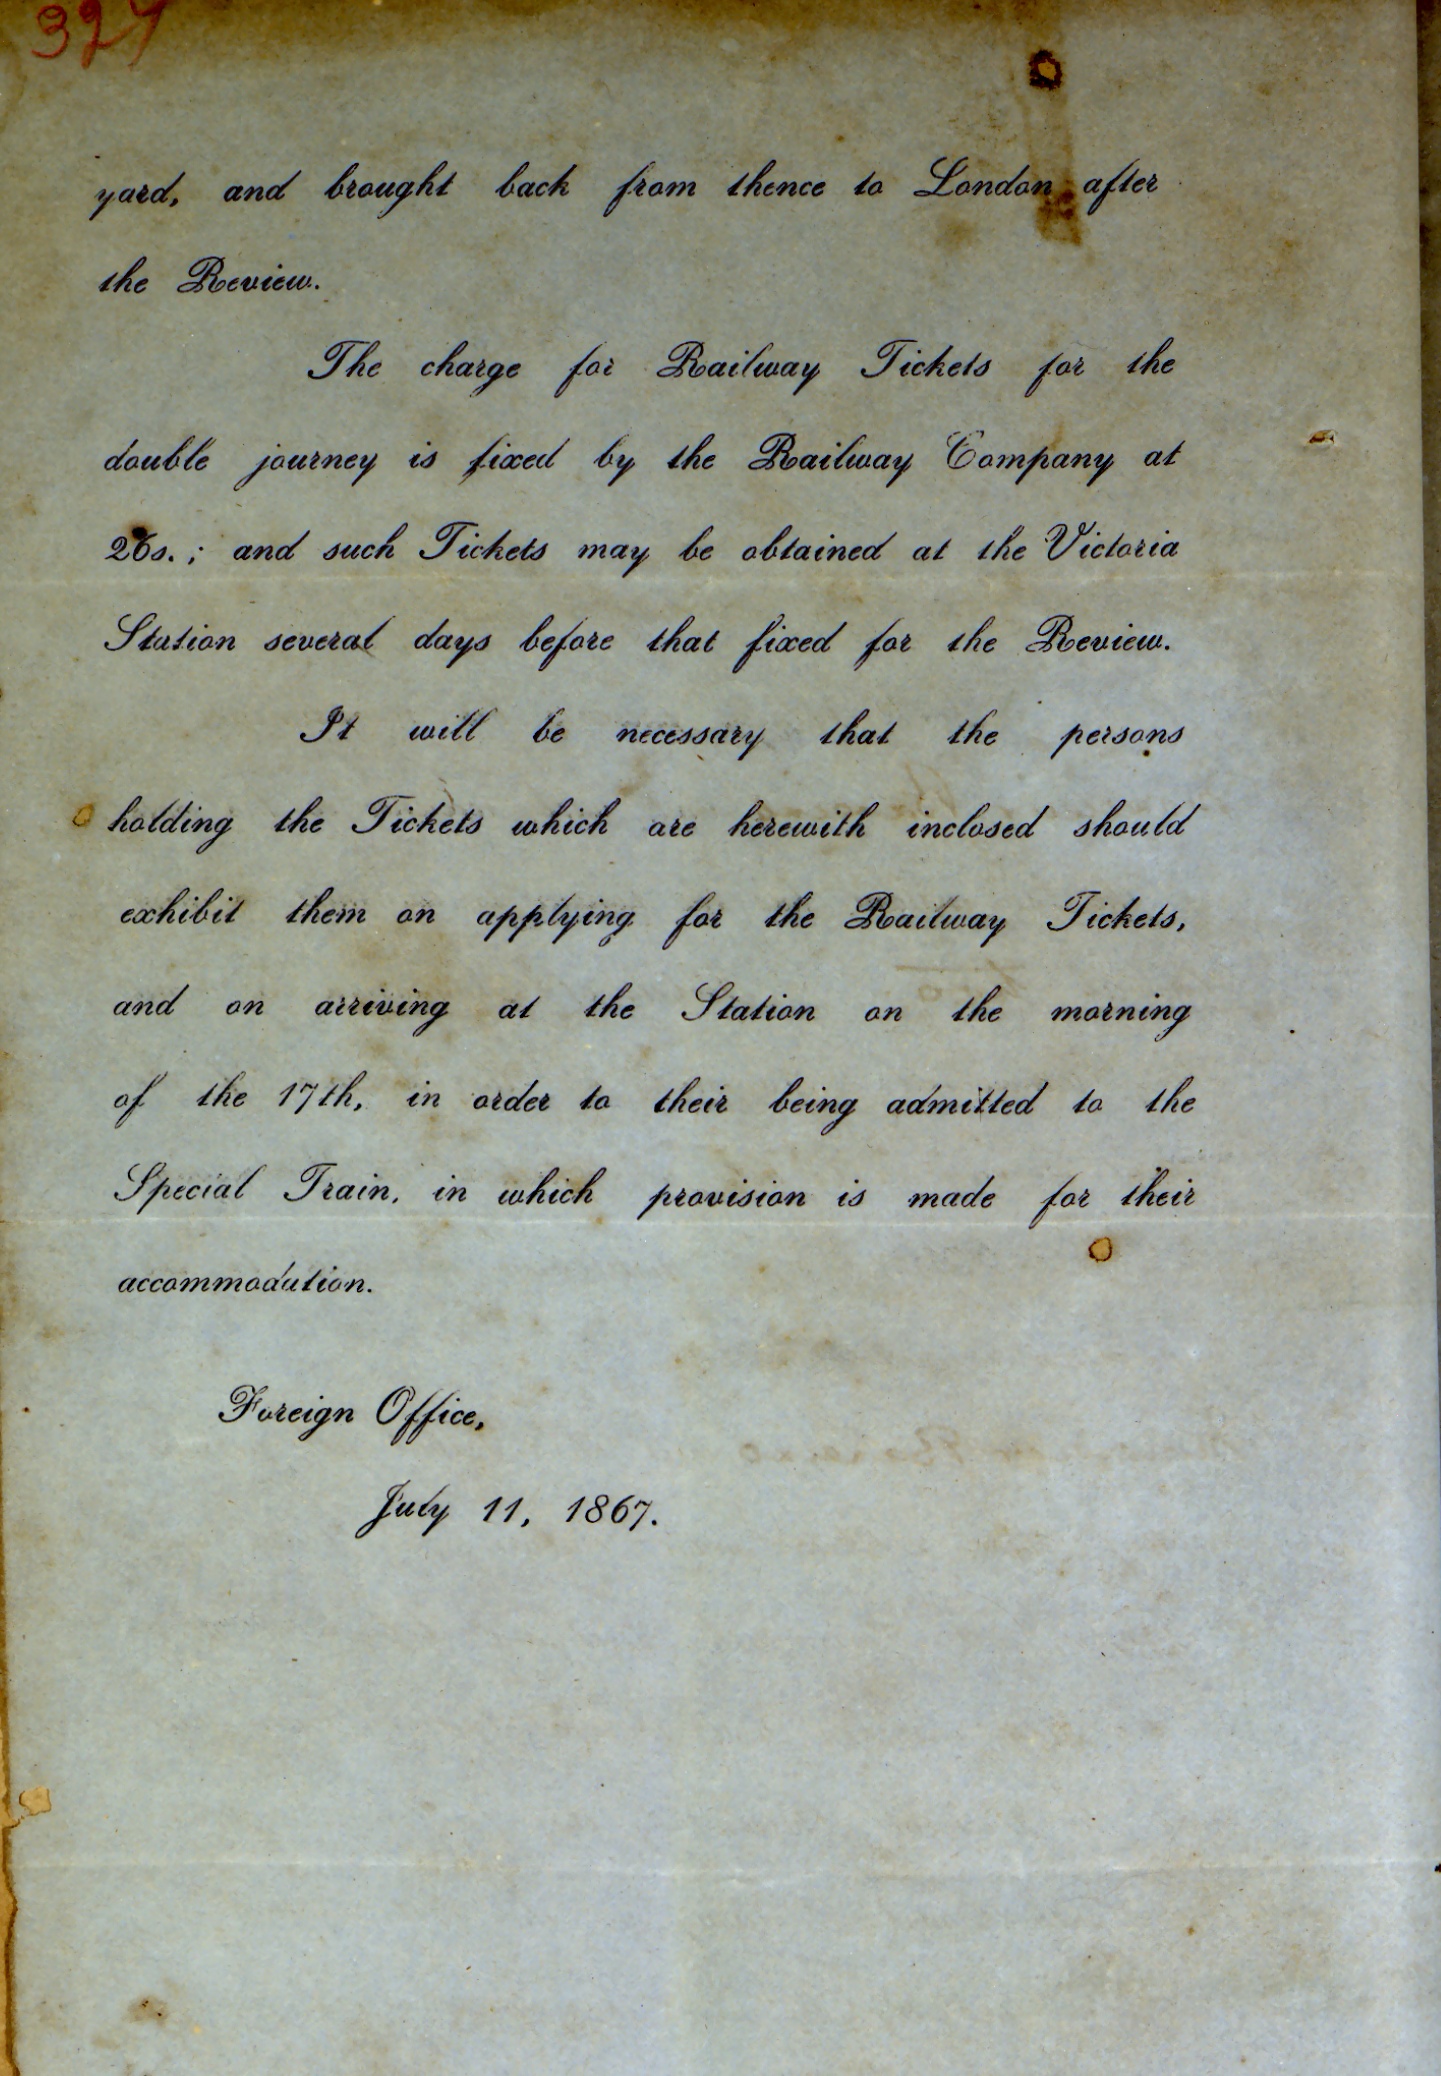 327
yard, and brought back from thence to London after
the Review.
The charge for Railway Tickets for the
double journey is fixed by the Railway Company at
26s.; and such Tickets may be obtained at the Victoria
Station several days before that fixed for the Review.
It will be necessary that the persons
holding the Tickets which are herewith inclosed should
exhibit them on applying for the Railway Tickets,
and on arriving at the Station on the morning
of the 17th, in order to their being admitted to the
Special Train, in which provision is made for their
accommodation.
Foreign Office,
July 11, 1867.